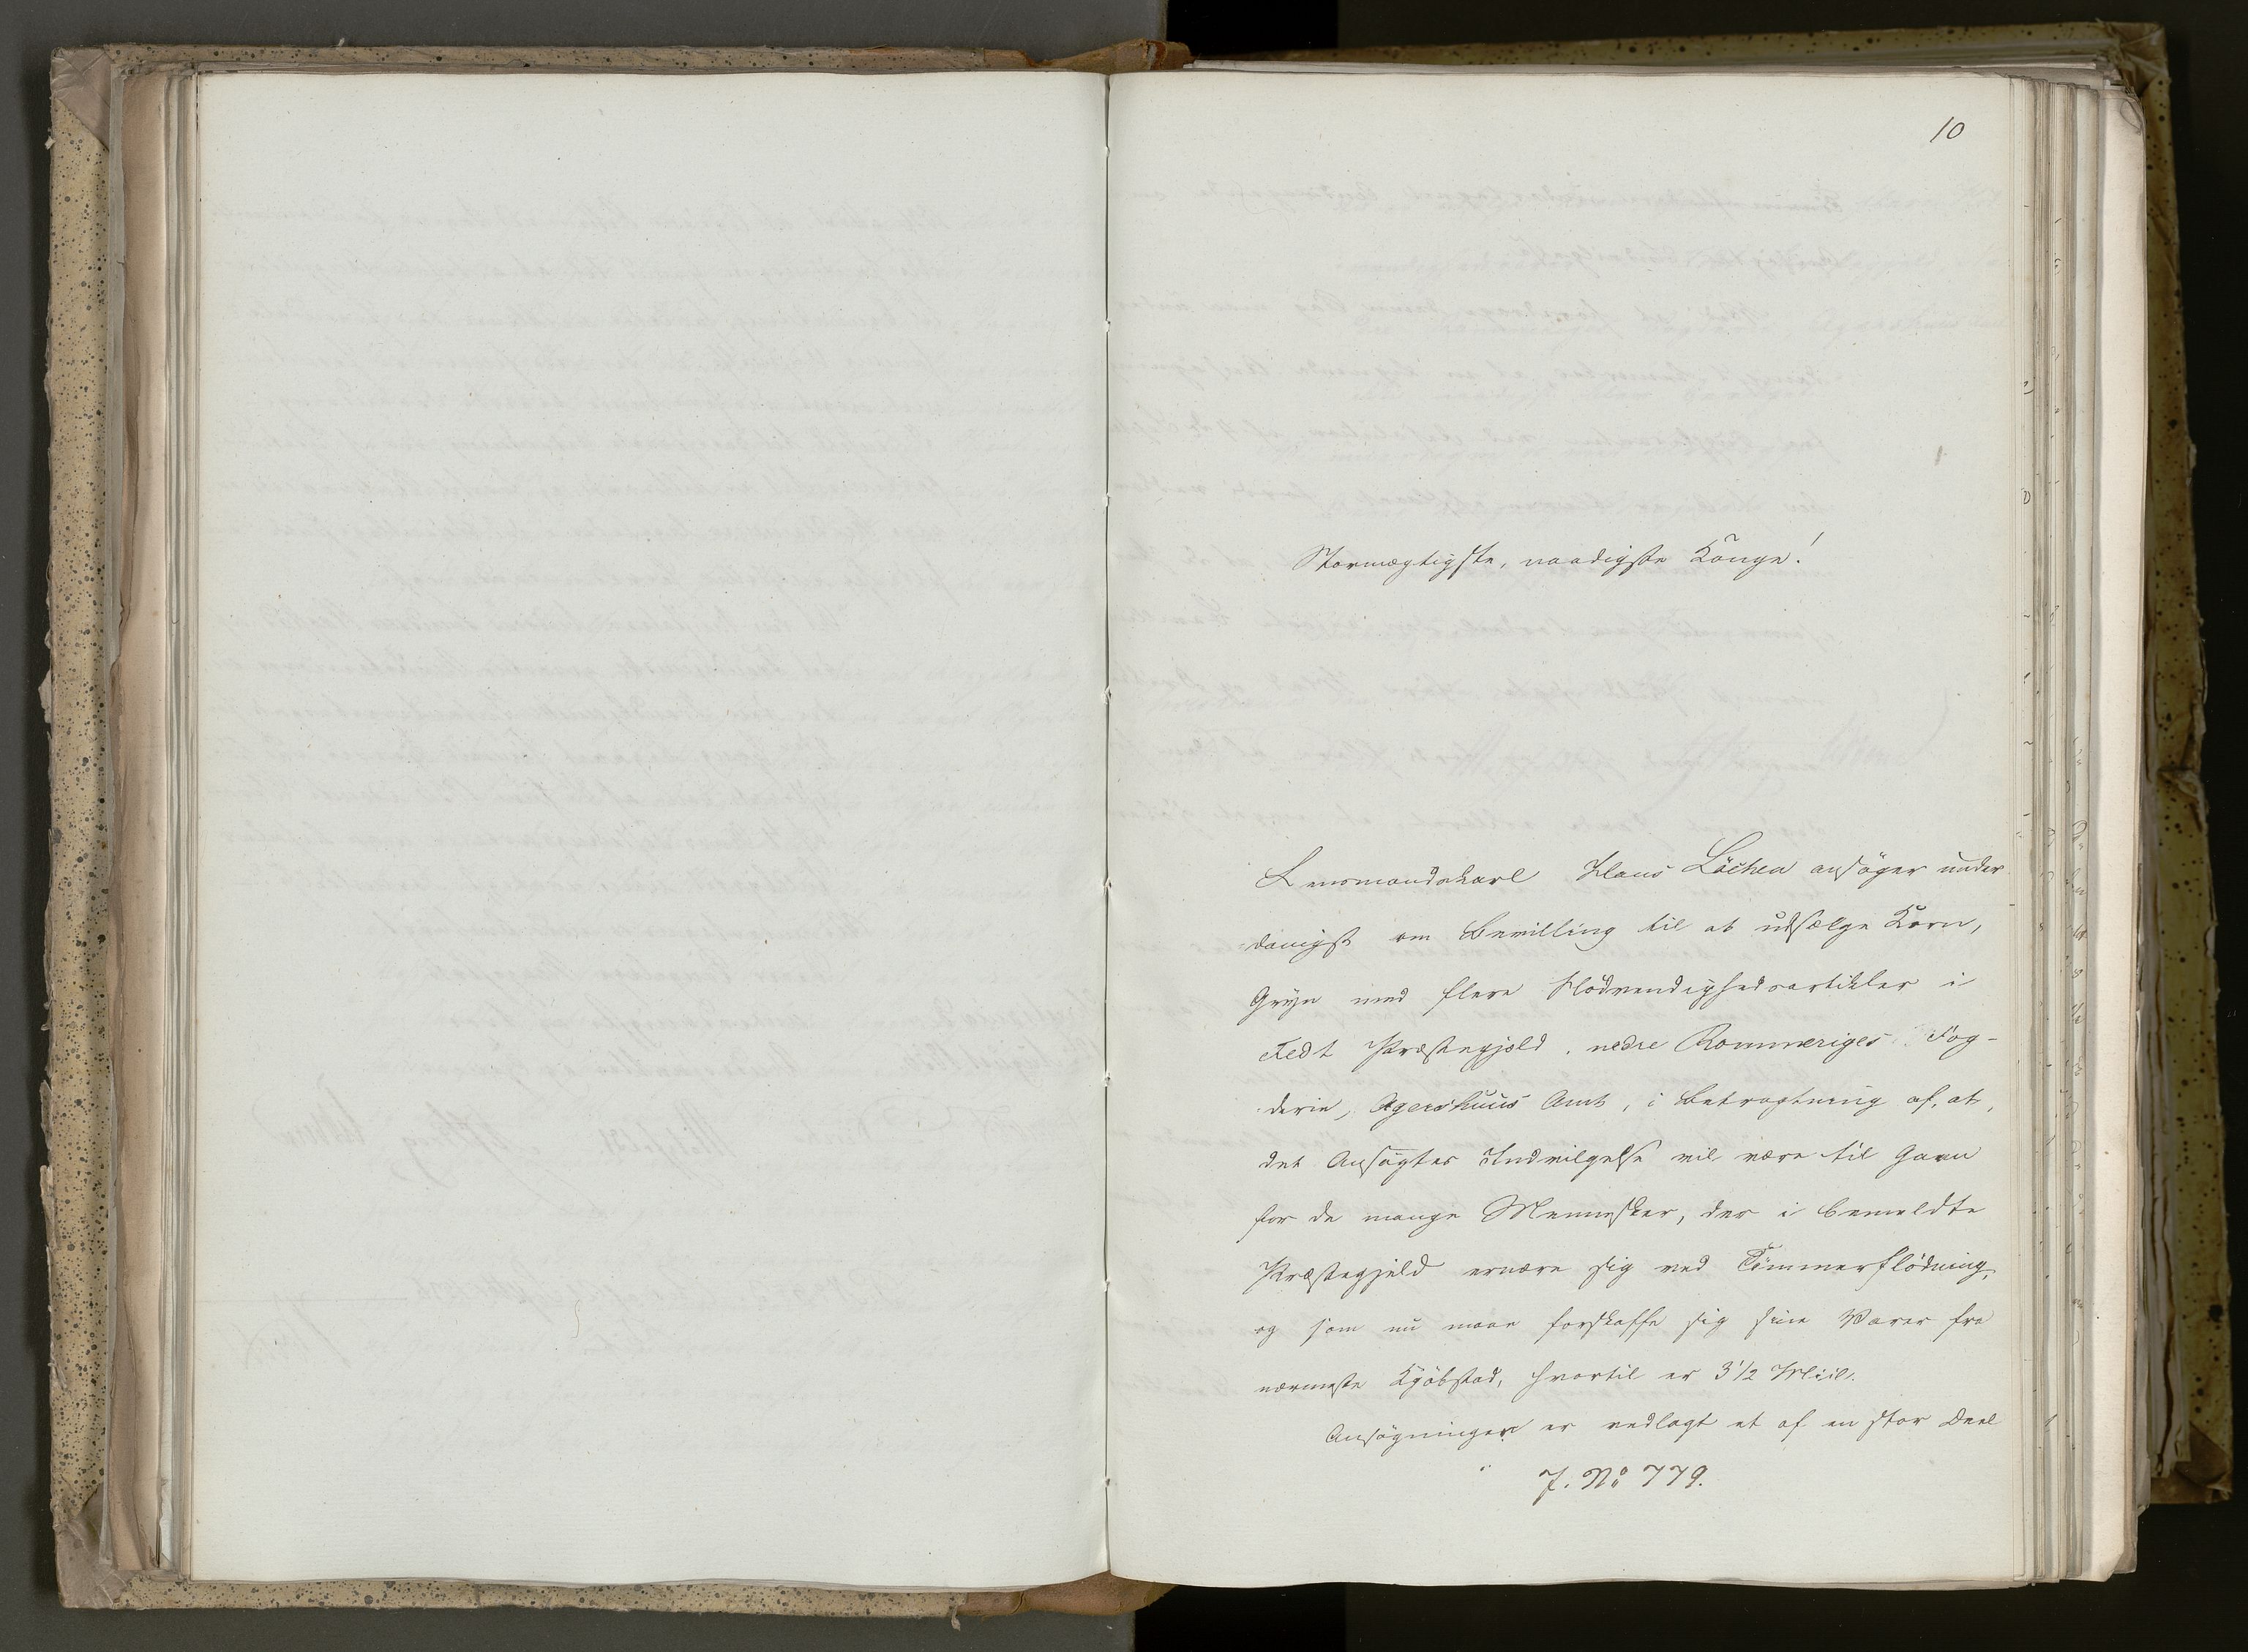 10
Stormægtigste, naadigste Konge!
Lensmandskarl Klaus Löchen ansöger under
danigst om Bevilling til at udsælge Korn,
Gryn med flere Nödvendighedsartikler i
Fedt Præstegjæld, nedre Rommeriges Fog-
derie, Agershuus Amt, i Betragtning af, at,
det Ansögtes Indvilgelse vil være til Gavn
for de mange Mennesker, der i bemeldte
Præstegjeld ernære sig ved Tömmerflödning,
og som nu maae forskaffe sig sine Varer fra
nærmeste Kjöbstad, hvortil er 3 1/2 Miil.
Ansögningen er vedlagt et af en stor Deel
J. No 779.